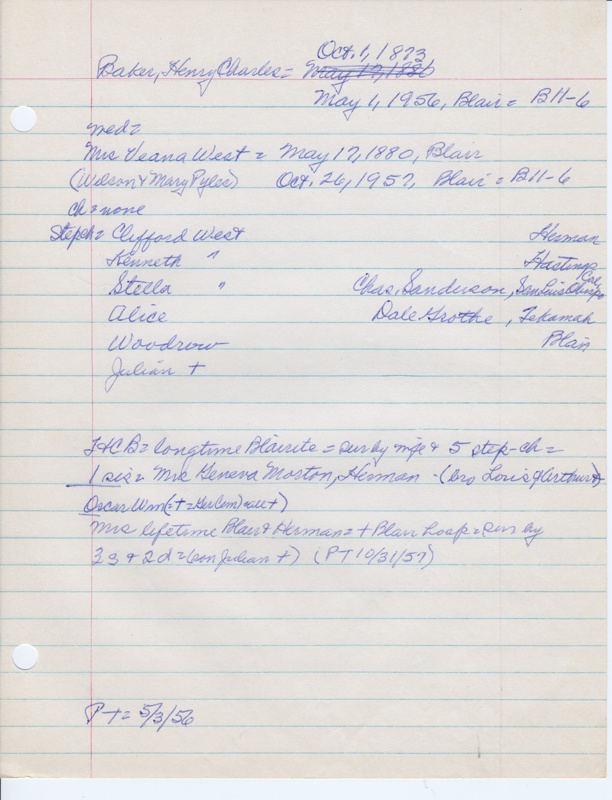 Oct. 1, 1873
Baker, Henry Charles = May 17, 1880
May 1, 1956, Blair = B11-6
med =
Mrs Veana West = May 17, 1880, Blair
(Wilson & Mary Pyles) Oct. 26, 1957, Blair = B11-6
ch = none
Stepch = Clifford West Herman
Kenneth " Hastings
Stella " Chas. Sanderson, San Luis Obispo Cal
Alice Dale Grothe, Tekamah
Woodrow Blair
Julian +
HCB = longtime Blairite = sur by wife & 5 step-ch =
1 sis = Mrs Geneva Morton, Herman - (bro Louis & Arthur +)
Oscar Wm (= + = Ger Cem)
Mrs lifetime Blair & Herman = + Blair Hosp = sur by
3 s & 2 d = (son Julian +) (PT 10/31/57)
PT = 5/3/56